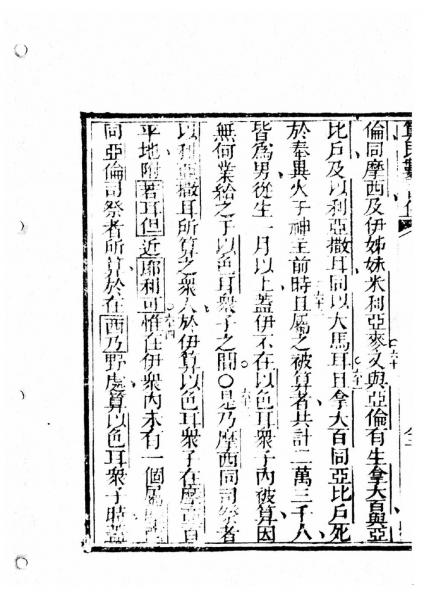 倫同摩西及伊姊妹米利亞來又與亞倫有生拿大百與亞
比戶及以利亞撒耳同以大馬耳且拿大百同亞比戶死
於奉異火于神主前時且屬之被算者共計二萬三千人
皆為男從生一月以上蓋伊不在以色耳眾子內被算因
無何業給之于以色耳眾子之間〇是乃摩西同司祭者
以利亞撒耳所算之眾人於伊算以色耳眾子在摩百
平地附若耳但近耶利可惟在伊眾內未有一個屬
同亞倫司祭者所算於在西乃野處算以色耳眾子時蓋